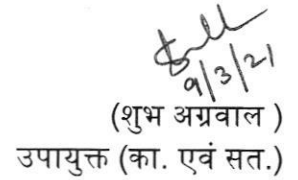 9/3/21
(शुभ अग्रवाल )
उपायुक्त (का. एवं सत.)